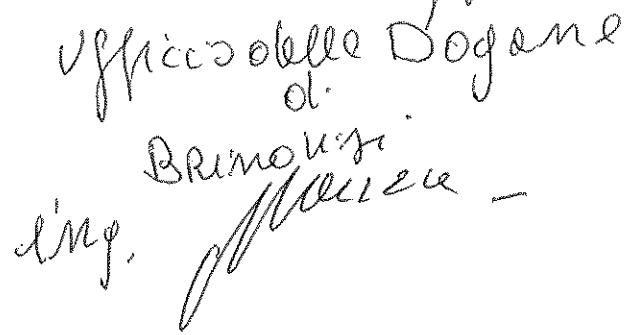 Ufficio delle Dogane
di
Brindisi
ing.